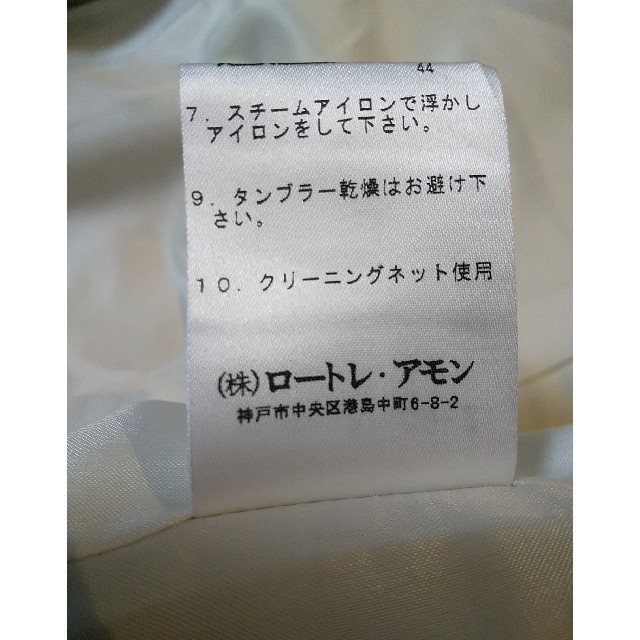 44
7．スチームアイロンで浮かし
アイロンをして下さい。
9．タンブラー乾燥はお避け下
さい。
10．クリーニングネット使用
(株)ロートレ・アモン
神戸市中央区港島中町6-8-2